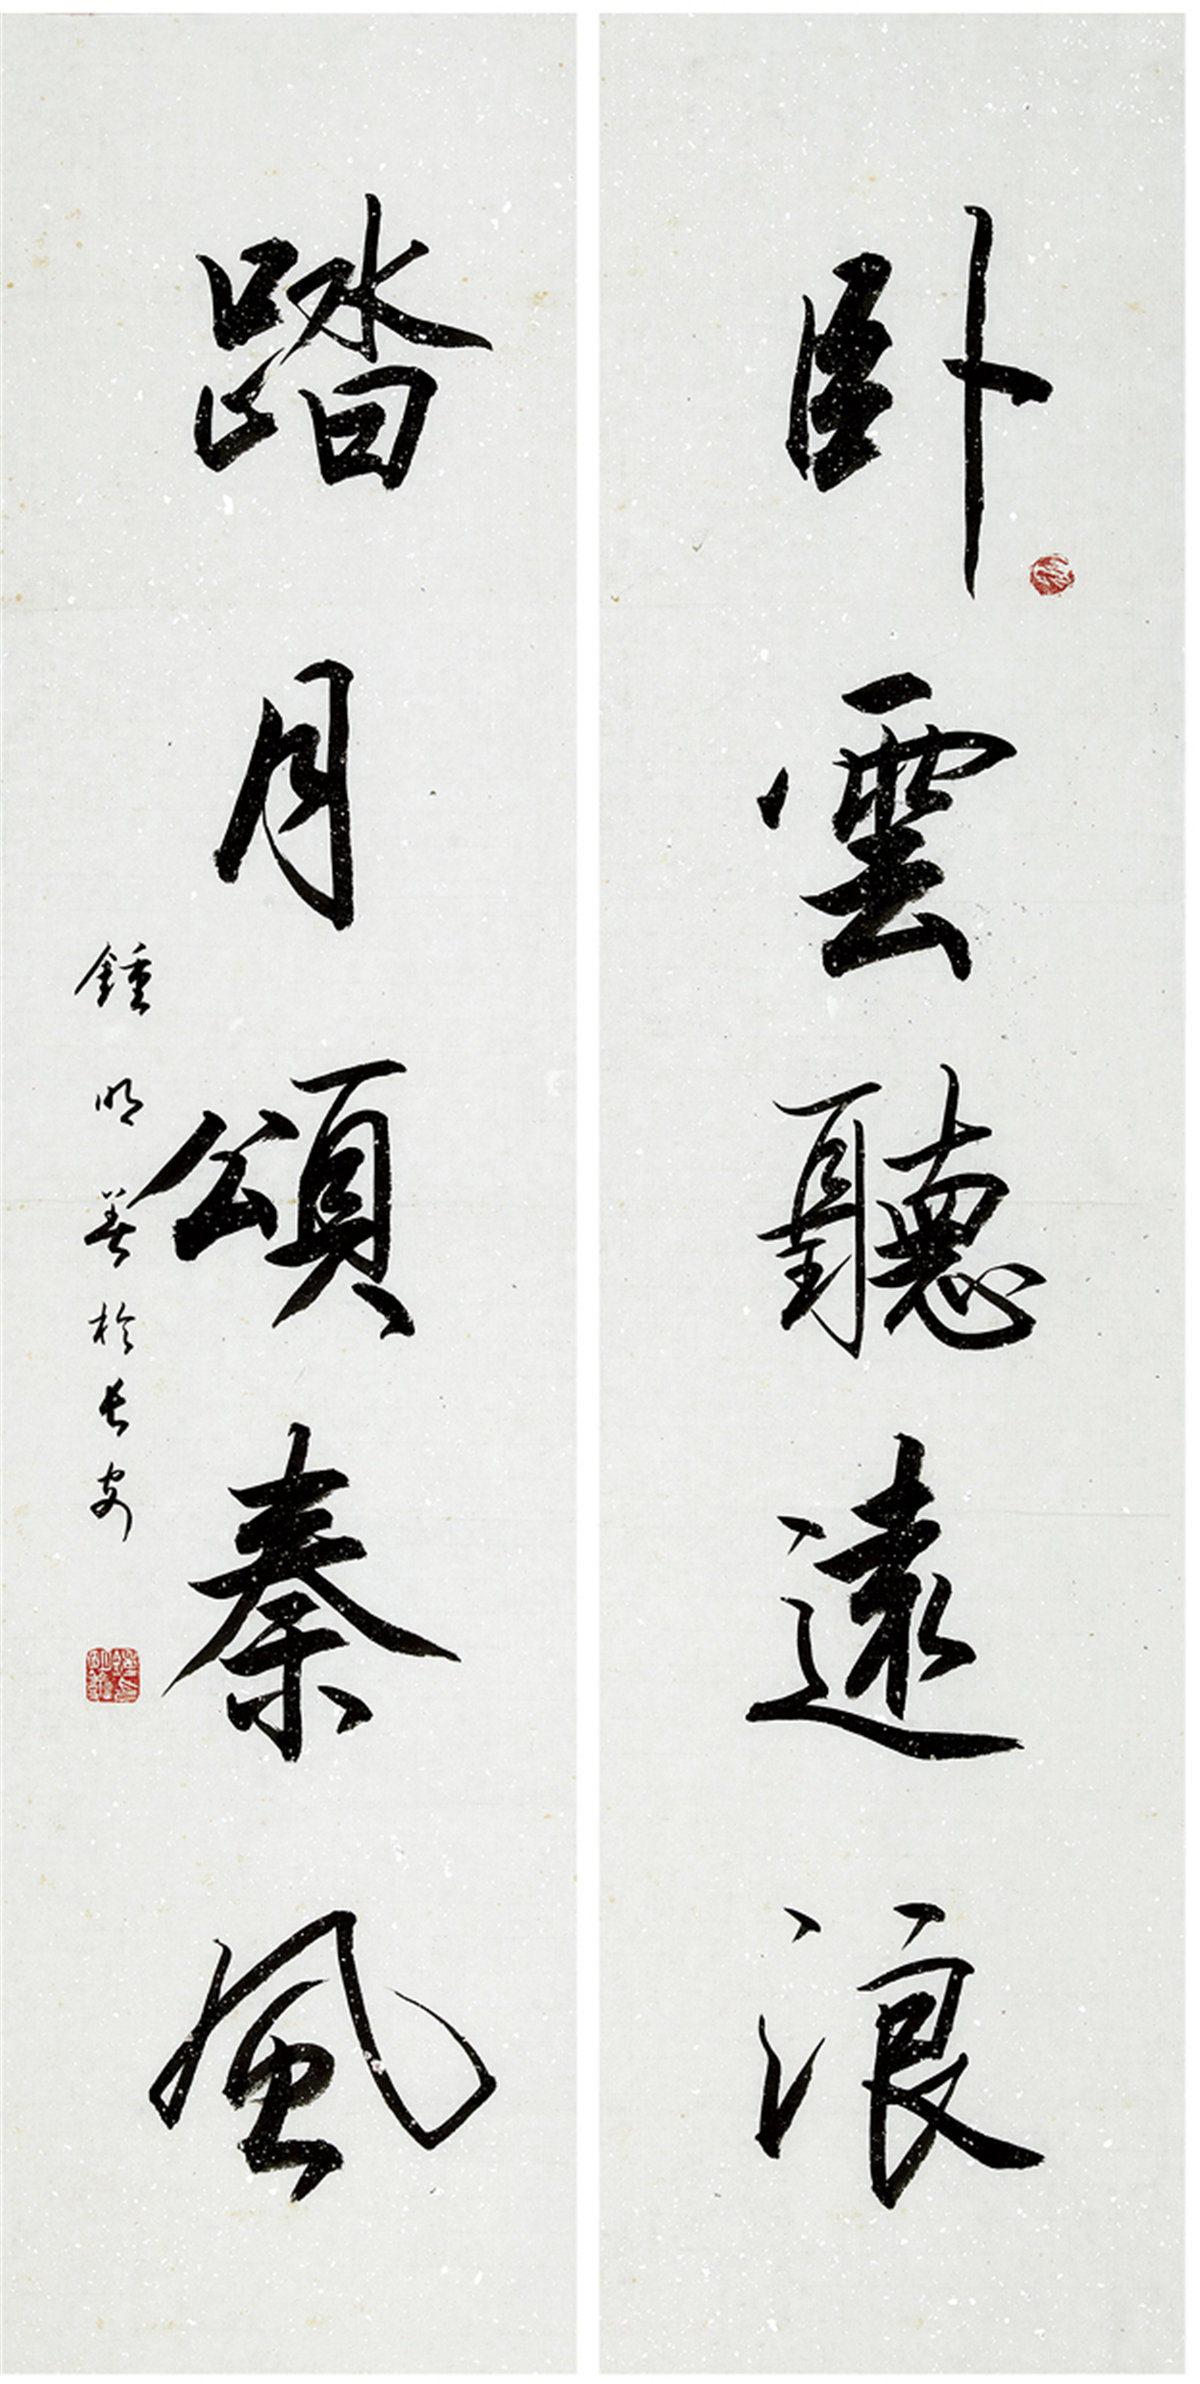 卧雲聽遠浪
踏月頌秦風
鍾明善於長安